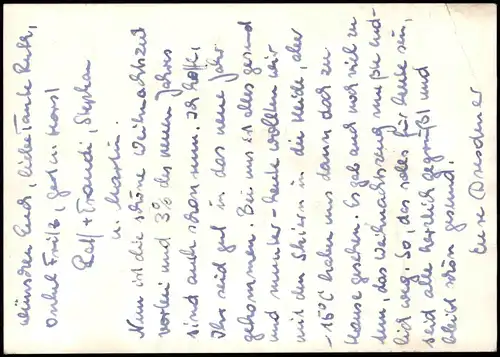 wünschen Euch, liebe Tante Ruth,
Onkel Fritz, Gerd u. Horst
Ralf + Traudi, Stephan
u. Martin.
Nun ist die schöne Weihnachtszeit
vorbei und 3% des neuen Jahres
sind auch schon rum. Ich hoffe,
Ihr seid gut in das neue Jahr
gekommen. Bei uns ist alles gesund
und munter – heute wollten wir
mit den Skiern in die Heide, aber
-15°C haben uns dann doch zu
Hause gesehen. Es gab auch noch viel zu
tun, das Weihnachtszeug mußte end-
lich weg. So, das solls für heute sein,
seid alle herzlich gegrüßt und
bleibt schön gesund.
Eure Dresdner